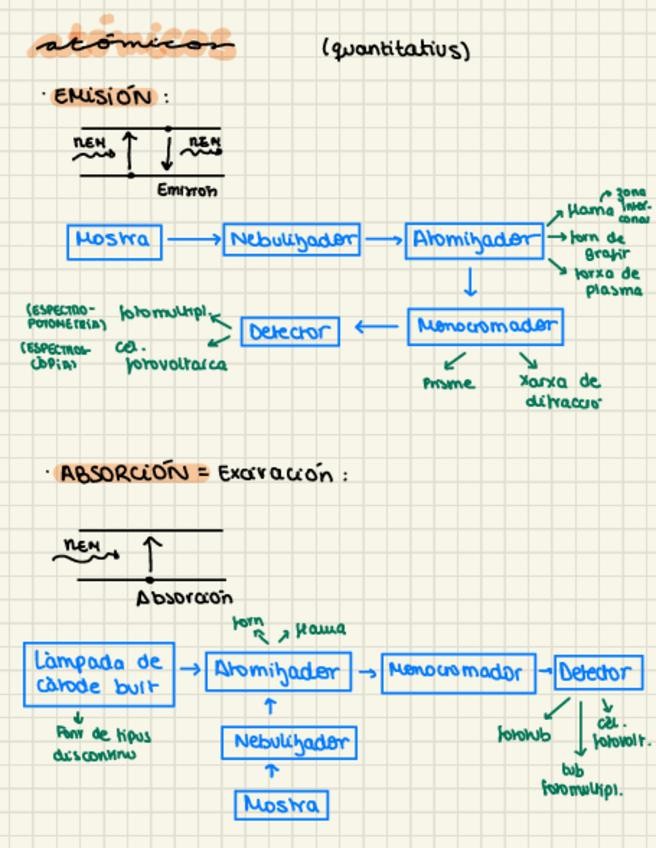 atómicos (quantitatius)
· EMISIÓN :
REM REM
Emisión
Mostra Nebulitzador Atomitzador
Flama zona
inter-
conal
forn de
grafit
torxa de
plasma
(ESPECTRO-
FOTOMETRIA)
fotomultipl.
(ESPECTROS-
CÒPIA)
cèl.
fotovoltaica
Detector Monocromador
Prisme
xarxa de
difracció
· ABSORCIÓN = Excitación :
REM
Absorción
forn flama
Làmpada de
càtode buit
Atomitzador Monocromador Detector
Font de tipus
discontinu
Nebulitzador
Mostra
fototub
cèl.
fotovolt.
tub
fotomultipl.